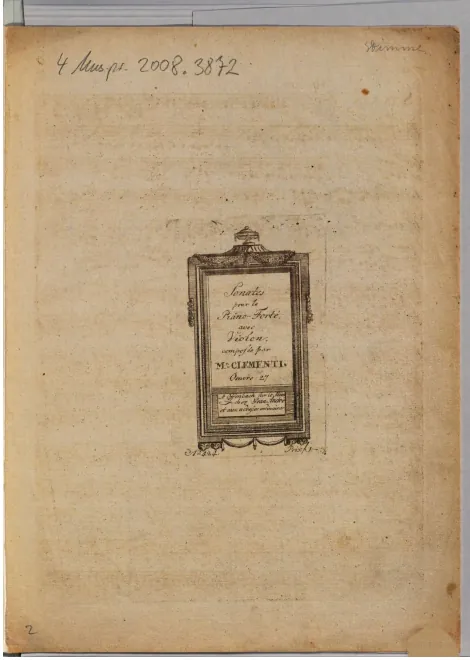 4 Mus.pr. 2008.3872
Stimme
Sonates
pour le
Piano-Forté
avec
Violon,
composés par
Mr. CLEMENTI.
Oeuvre 27
à Offenbach sur le Mein
chez Jean André
2